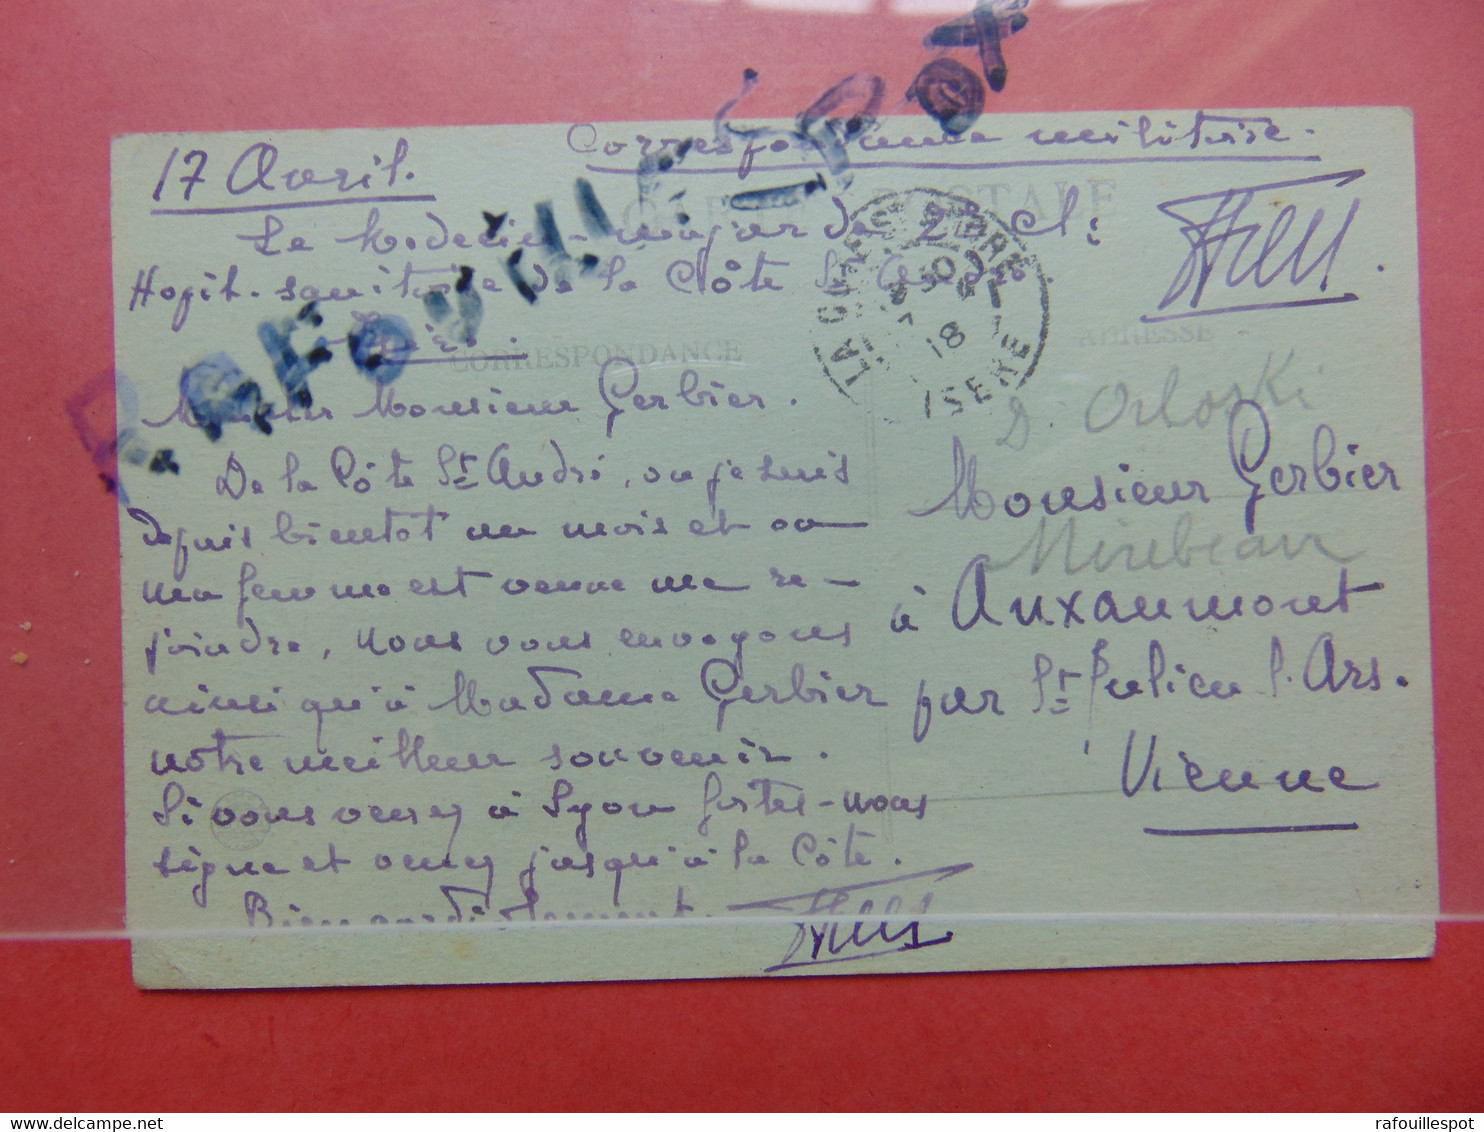 17 Avril.
Correspondance militaire.
CARTE POSTALE
Le Médecin-major de 2e Cl:
Hopit. sanitaire de la Côte St André
Isère.
CORRESPONDANCE
ADRESSE
LA COTE-ST-ANDRE
18
ISERE
RAFOUILLE-POT
Monsieur Gerbier.
De la Côte St André, ou je suis
depuis bientot un mois et ou
ma femme est venue me re-
joindre, nous vous envoyons
ainsi qu'à Madame Gerbier
notre meilleur souvenir.
Si vous venez à Lyon faites-nous
signe et venez jusqu'à la Côte.
Bien cordialement.
D. Orloski
Monsieur Gerbier
Mirebeau
à Auxaumont
par St Julien l. Ars.
Vienne
rafouillespot